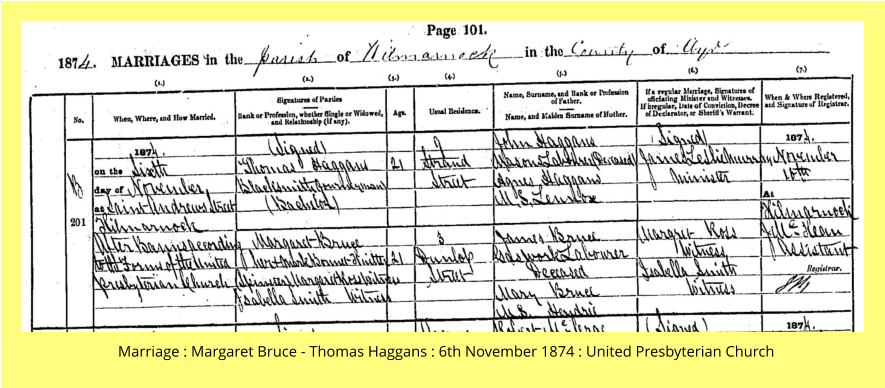 Page 101.
1874. MARRIAGES in the parish of Kilmarnock in the County of Ayr
(1.) (2.) (3.) (4.) (5.) (6.) (7.)
No.
When, Where, and How Married.
Signatures of Parties
Rank or Profession, whether Single or Widowed, and Relationship (if any).
Age.
Usual Residence.
Name, Surname, and Rank or Profession of Father.
Name, and Maiden Surname of Mother.
If a regular Marriage, Signatures of officiating Minister and Witnesses.
If irregular, Date of Conviction, Decree of Declarator, or Sheriff's Warrant.
When & Where Registered, and Signature of Registrar.
201
1874
on the Sixth
day of November
at Saint Andrews Street
Kilmarnock
After Banns according
to the Forms of the United
Presbyterian Church
(Signed)
Thomas Haggans
Blacksmith (Journeyman)
(Bachelor)
Margaret Bruce
Bonnet Knitter
Spinster Margaret Ross Witness
Isabella Smith Witness
21
21
9
Strand
Street
3
Dunlop
Street
John Haggans
Masons Labourer (Deceased)
Agnes Haggans
M.S. Lennox
James Bruce
Gaswork Labourer
Deceased
Mary Bruce
M.S. Hendrie
(Signed)
James Leslie Murray
Minister
Margret Ross
Witness
Isabella Smith
Witness
1874.
November
10th
At
Kilmarnock
Assistant
Registrar.
(Signed)
1874.
Marriage : Margaret Bruce - Thomas Haggans : 6th November 1874 : United Presbyterian Church